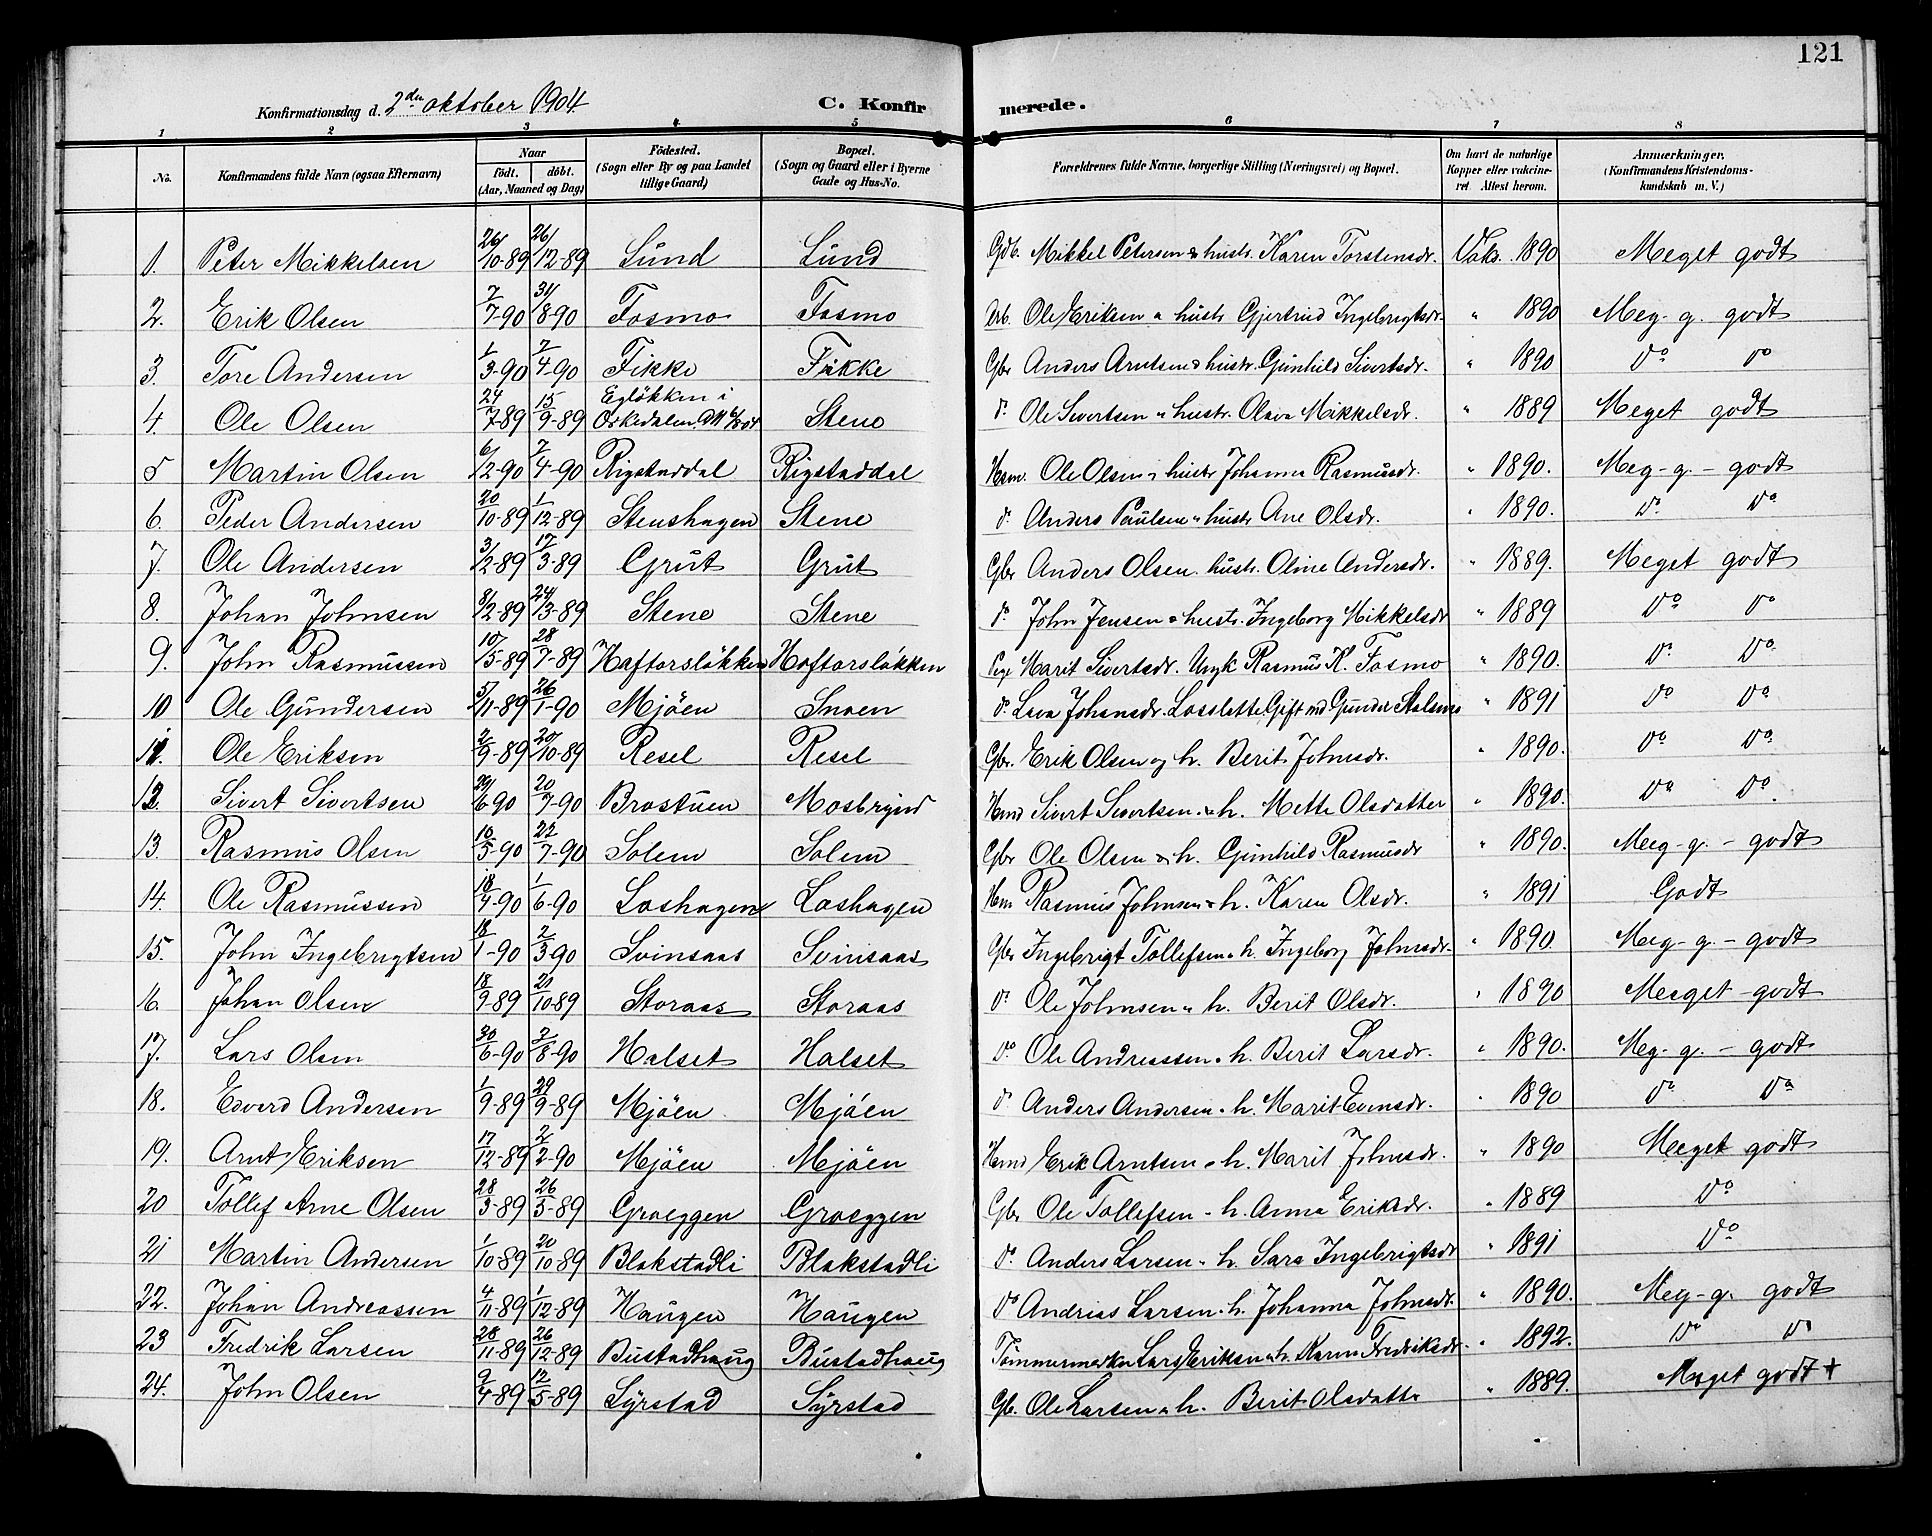 121
Konfirmationsdag d. 2den oktober 1904. C. Konfirmerede.
1 2 3 4 5 6 7 8
No. Konfirmandens fulde Navn (ogsaa Efternavn) Naar födt. döbt. (Aar, Maaned og Dag) Födested. (Sogn eller By og paa Landet tillige Gaard) Bopæl. (Sogn og Gaard eller i Byerne Gade og Hus-No. Forældrenes fulde Navne, borgerlige Stilling (Næringsvei) og Bopæl. Om havt de naturlige Kopper eller vakcineret. Attest herom. Anmærkninger. (Konfirmandens Kristendomskundskab m. V.)
1. Peter Mikkelsen 26/10-89 26/12-89 Lund Lund Gdb. Mikkel Petersen & hustr. Karen Torstensdr. Vaks. 1890 Meget godt
2. Erik Olsen 7/7-90 31/8-90 Fosmo Fosmo Arb. Ole Eriksen & hustr Gjertrud Ingebrigtsdr. " 1890 Meg- g. godt
3. Tore Andersen 1/3-90 7/4-90 Fikke Fikke Gbr Anders Arntsen & hustr. Gunhild Sivertsdr. " 1890 Do Do
4. Ole Olsen 24/7-89 15/9-89 Egløkken i Orkedalen. Steno Do Ole Sivertsen & hustr. Olava Mikkelsdr. " 1889 Meget godt
5 Martin Olsen 6/2-90 7/4-90 Rigstaddal Rigstaddal Hsm. Ole Olsen & hustr Johanna Rasmusdr. " 1890. Meg-g.- godt
6. Peder Andersen 20/10-89 1/12-89 Stenshagen Stene Do Anders Paulsen & hustr Ane Olsdr. " 1890. Do Do
7. Ole Andersen 3/2-89 17/3-89 Grut Grut Gbr Anders Olsen. hustr. Oline Andersdr. " 1889. Meget godt
8. Johan Johnsen 8/2-89 24/3-89 Stene Stene Do John Jensen & hustr. Ingeborg Mikkelsdr " 1889 Do Do
9. John Rasmussen 10/5-89 28/7-89 Haftorsløkken Haftorsløkken Pige Marit Sivertsdr. Ungk Rasmus K. Fosmo " 1890. Do Do
10 Ole Gundersen 5/11-89 26/1-90 Mjöen Snoen Do Lava Johansdr. Losslette. Gift md Gunder Stalsmo " 1891 Do Do
11. Ole Eriksen 2/9-89 20/10-89 Resel Resel Gbr. Erik Olsen og h. Berit Johnsdr. " 1890. Do Do
12. Sivert Sivertsen 29/6-90 20/7-90 Brostuen Mosbrynd Hsmd Sivert Sivertsen & h. Mette Olsdatter " 1890. Do Do.
13. Rasmus Olsen 16/5-90 27/7-90 Solem Solem Gbr Ole Olsen & h. Gunhild Rasmusdr " 1890. Meg-g.- godt
14. Ole Rasmussen 18/4-90 1/6-90 Loshagen Loshagen Hsm Rasmus Johnsen & h. Karen Olsdr. " 1891 Godt
15. John Ingebrigtsen 18/1-90 2/3-90 Svinsaas Svinsaas Gbr Ingebrigt Tollefsen & h. Ingeborg Johnsdr. " 1890. Meg-g.- godt
16. Johan Olsen 18/9-89 21/10-89 Storaas Storaas Do Ole Johnsen & h. Berit Olsdr. " 1890 Meget godt
17. Lars Olsen 30/6-90 3/8-90 Halset Halset Do Ole Andreassen & h. Berit Larsdr. " 1890. Meg-g.- godt
18. Edvard Andersen 1/9-89 29/9-89 Mjöen Mjöen Do Anders Andersen & h. Marit Evensdr. " 1890 Do Do
19. Arnt Eriksen 17/12-89 2/2-90 Mjöen Mjöen Hsmd Erik Arntsen & h. Marit Johnsdr. " 1890 Meget godt
20 Tollef Arne Olsen 28/3-89 26/5-89 Groeggen Groeggen Gbr Ole Tollefsen & h. Anna Eriksdr. " 1889 Do
21 Martin Andersen 1/10-89 20/10-89 Blokstadli Blokstadli Do Anders Larsen & h. Sara Ingebrigtsdr " 1891 Do
22. Johan Andreassen 4/11-89 1/12-89 Haugen Haugen Do Andrias Larsen & h. Johanna Johnsdr. " 1890. Meg-g. godt
23 Fredrik Larsen 28/11-89 26/12-89 Bustadhaug Bustadhaug Tömmermerker Lars Eriksen & h. Karen Fredriksdr. " 1892. Do Do
24. John Olsen 9/4-89 12/5-89 Syrstad Syrstad Gbr. Ole Larsen & h. Berit Olsdatter " 1889. Meget godt +